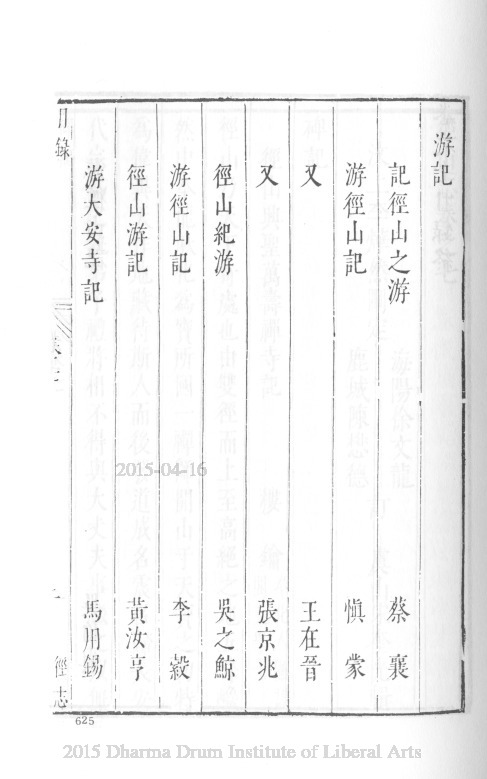 游記
記徑山之游 蔡襄
游徑山記 愼蒙
又 王在晉
又 張京兆
徑山紀游 吳之鯨
游徑山記 李穀
徑山游記 黃汝亨
游大安寺記 馬用錫
目錄 徑志
625
2015-04-16
2015 Dharma Drum Institute of Liberal Arts